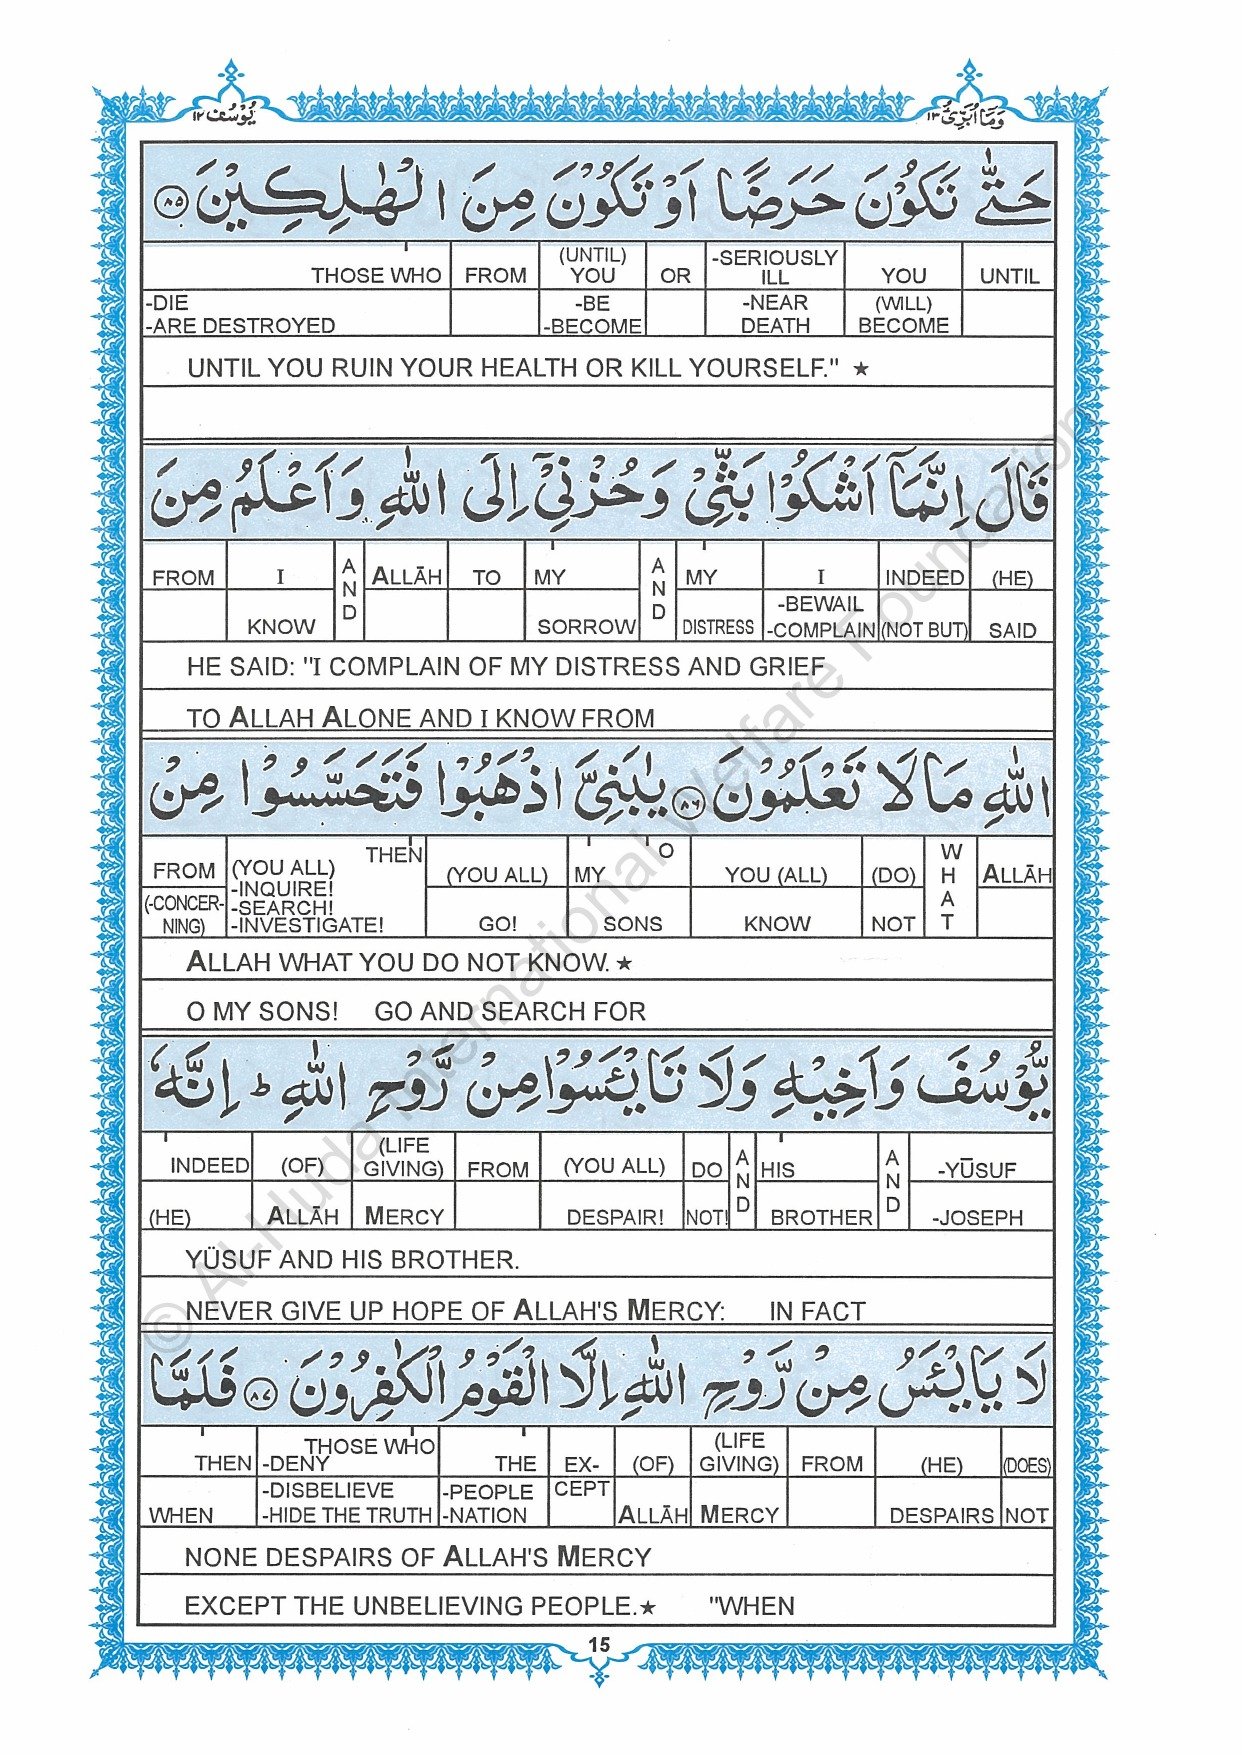 یُوْسُف ١٢
وَمَا اُبَرِّئُ ١٣
حَتّٰى تَكُوْنَ حَرَضًا اَوْ تَكُوْنَ مِنَ الْهٰلِكِيْنَ ٨٥
THOSE WHO FROM (UNTIL) YOU OR -SERIOUSLY ILL YOU UNTIL
-DIE -ARE DESTROYED -BE -BECOME -NEAR DEATH (WILL) BECOME
UNTIL YOU RUIN YOUR HEALTH OR KILL YOURSELF." ★
قَالَ اِنَّمَاۤ اَشْكُوْا بَثِّيْ وَ حُزْنِيْۤ اِلَى اللّٰهِ وَ اَعْلَمُ مِنَ
FROM I AND ALLĀH TO MY AND MY I INDEED (HE)
KNOW SORROW DISTRESS -BEWAIL -COMPLAIN (NOT BUT) SAID
HE SAID: "I COMPLAIN OF MY DISTRESS AND GRIEF
TO ALLAH ALONE AND I KNOW FROM
اللّٰهِ مَا لَا تَعْلَمُوْنَ ٨٦ يٰبَنِيَّ اذْهَبُوْا فَتَحَسَّسُوْا مِنْ
FROM THEN (YOU ALL) (YOU ALL) MY O YOU (ALL) (DO) WHAT ALLĀH
(-CONCERNING) -INQUIRE! -SEARCH! -INVESTIGATE! GO! SONS KNOW NOT
ALLAH WHAT YOU DO NOT KNOW. ★
O MY SONS! GO AND SEARCH FOR
يُّوْسُفَ وَ اَخِيْهِ وَلَا تَايْـَٔسُوْا مِنْ رَّوْحِ اللّٰهِ ؕ اِنَّهٗ
INDEED (OF) (LIFE GIVING) FROM (YOU ALL) DO AND HIS AND -YŪSUF
(HE) ALLĀH MERCY DESPAIR! NOT! BROTHER -JOSEPH
YÜSUF AND HIS BROTHER.
NEVER GIVE UP HOPE OF ALLAH'S MERCY: IN FACT
لَا يَايْـَٔسُ مِنْ رَّوْحِ اللّٰهِ اِلَّا الْقَوْمُ الْكٰفِرُوْنَ ٨٧ فَلَمَّا
THEN THOSE WHO -DENY THE EX- (OF) (LIFE GIVING) FROM (HE) (DOES)
WHEN -DISBELIEVE -HIDE THE TRUTH -PEOPLE -NATION CEPT ALLĀH MERCY DESPAIRS NOT
NONE DESPAIRS OF ALLAH'S MERCY
EXCEPT THE UNBELIEVING PEOPLE.★ "WHEN
15
© Al-Huda International Welfare Foundation